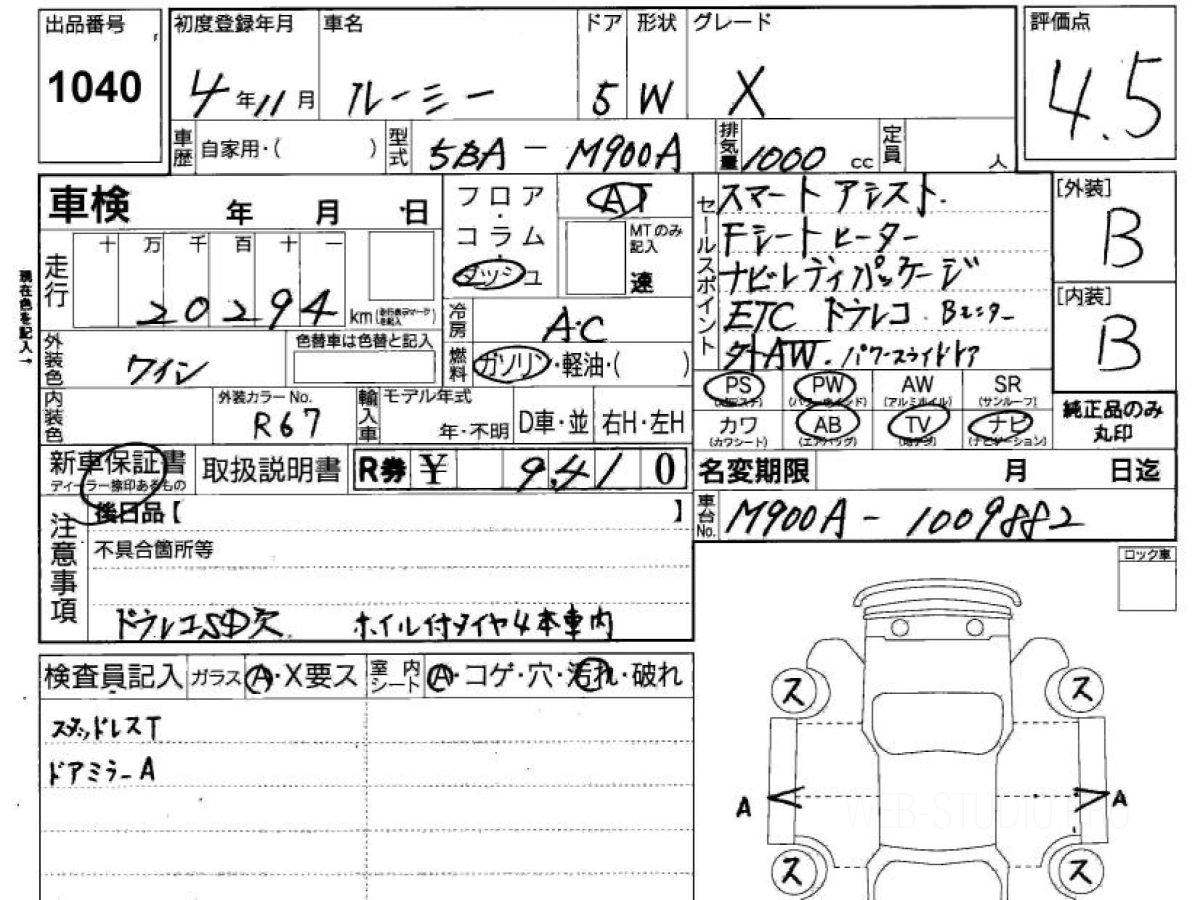 出品番号
1040
初度登録年月
4年11月
車名
ルーミー
ドア
5
形状
W
グレード
X
評価点
4.5
車歴
自家用・( )
型式
5BA - M900A
排気量
1000 cc
定員
人
車検 年 月 日
フロア・コラム・ダッシュ
AT
MTのみ記入
速
セールスポイント
スマートアシスト.
Fシートヒーター
ナビレディパッケージ
ETC ドラレコ. Bモニター
[外装]
B
[内装]
B
現在色を記入→
走行
十 万 千 百 十 一
20294 km
冷房
A・C
燃料
ガソリン・軽油・( )
外装色
ワイン
色替車は色替と記入
内装色
外装カラーNo.
R67
輸入車
モデル年式
年・不明
D車・並
右H・左H
PS
PW (パワーウインド)
AW (アルミホイル)
SR (サンルーフ)
カワ (カワシート)
AB (エアバッグ)
TV
ナビ (ナビゲーション)
純正品のみ丸印
新車保証書
ディーラー捺印あるもの
取扱説明書
R券 ¥ 9,410
名変期限 月 日迄
注意事項
後日品【 】
不具合箇所等
ドラレコSD欠. ホイル付タイヤ4本車内
車台No.
M900A - 1009882
ロック車
検査員記入
ガラス A・X要ス
室内シート A・コゲ・穴・汚れ・破れ
スタッドレスT
ドアミラーA
ス
ス
A
A
WEB-STUDIO.PRO
ス
ス